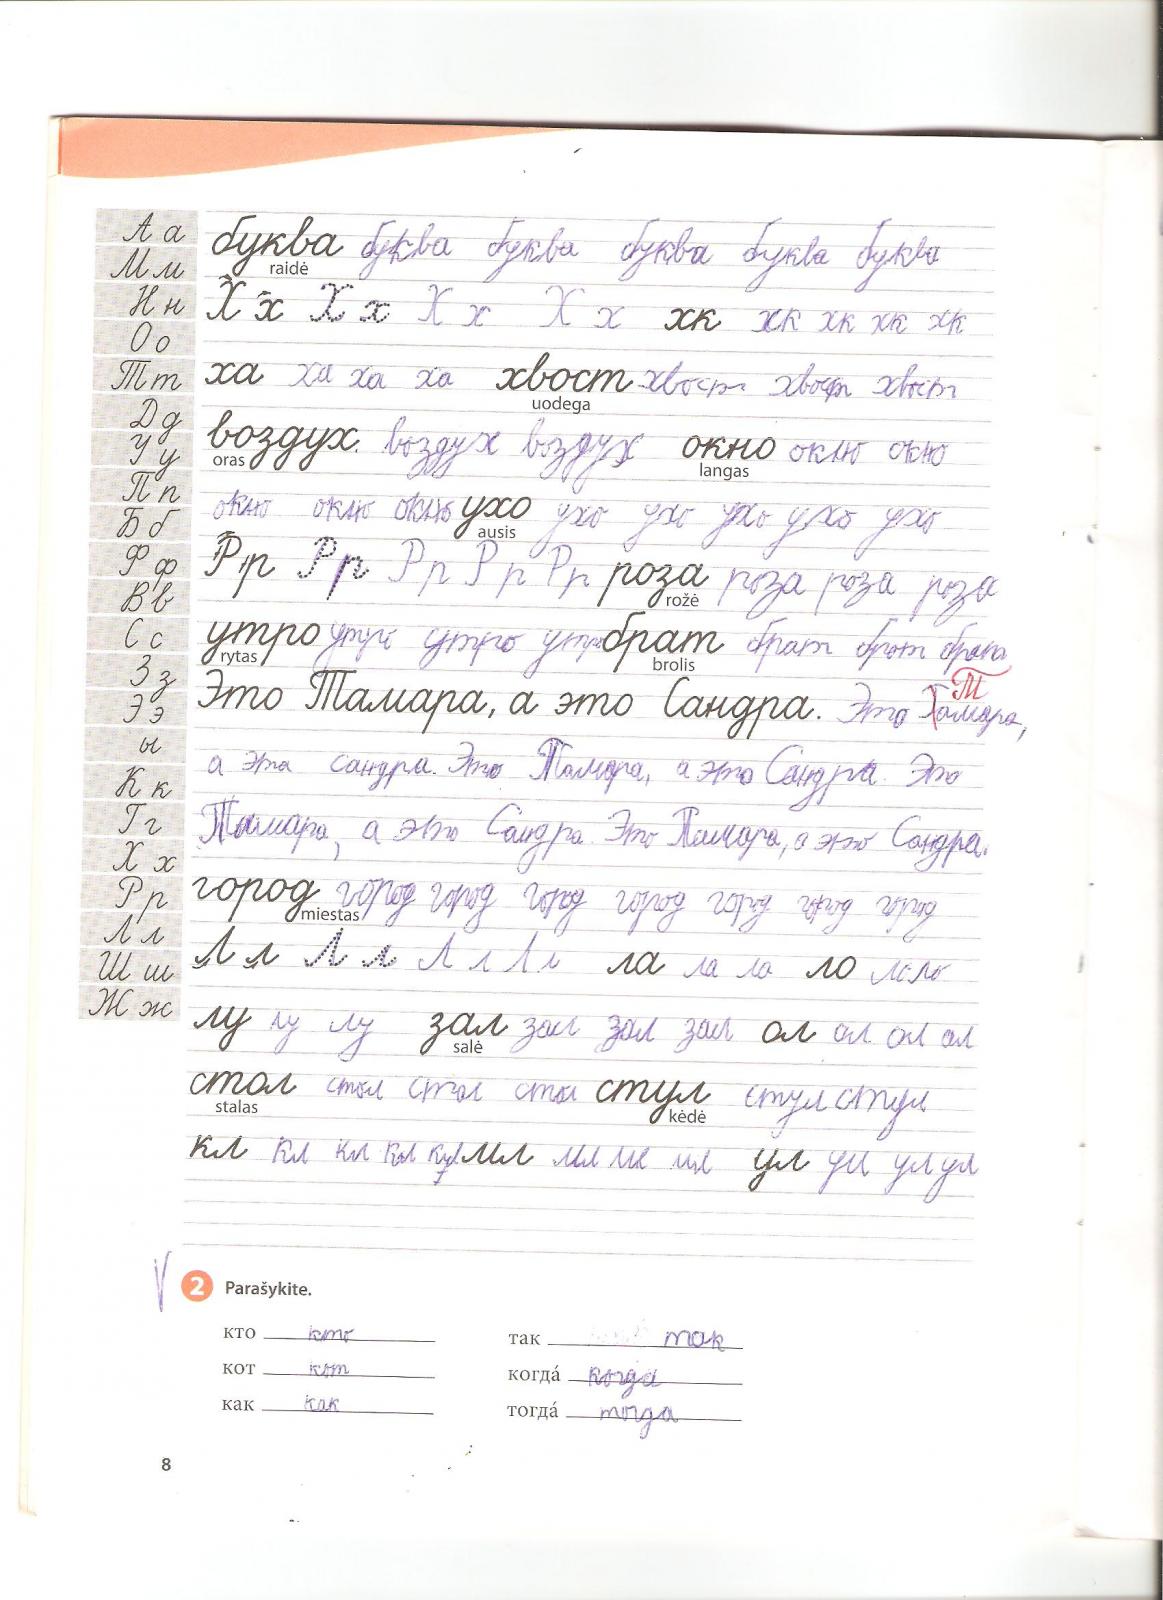 А а
М м
Н н
О о
Т т
Д д
У у
П п
Б б
Ф ф
В в
С с
З з
Э э
ы
К к
Г г
Х х
Р р
Л л
Ш ш
Ж ж
буква буква буква буква буква буква
raidė
Х х Х х Х х Х х хк хк хк хк хк
ха ха ха ха хвост хвост хвост хвост
uodega
воздух. воздух воздух окно окно окно
oras langas
окно окно окно ухо ухо ухо ухо ухо ухо
ausis
Р р Р р Р р Р р Р р роза роза роза роза
rožė
утро утро утро утро брат брат брат брат
rytas brolis
Т
Это Тамара, а это Сандра. Это Тамара,
а эта сандра. Это Тамара, а это Сандра. Это
Тамара, а это Сандра. Это Тамара, а это Сандра.
город город город город город город город город
miestas
Л л Л л Л л Л л ла ла ла ло ло ло
лу лу лу зал зал зал зал ол ол ол ол
salė
стол стол стол стол стул стул стул
stalas kėdė
кл кл кл кл ил ил ил ил ул ул ул ул
2 Parašykite.
кто кто так так
кот кот когда́ когда
как как тогда́ тогда
8